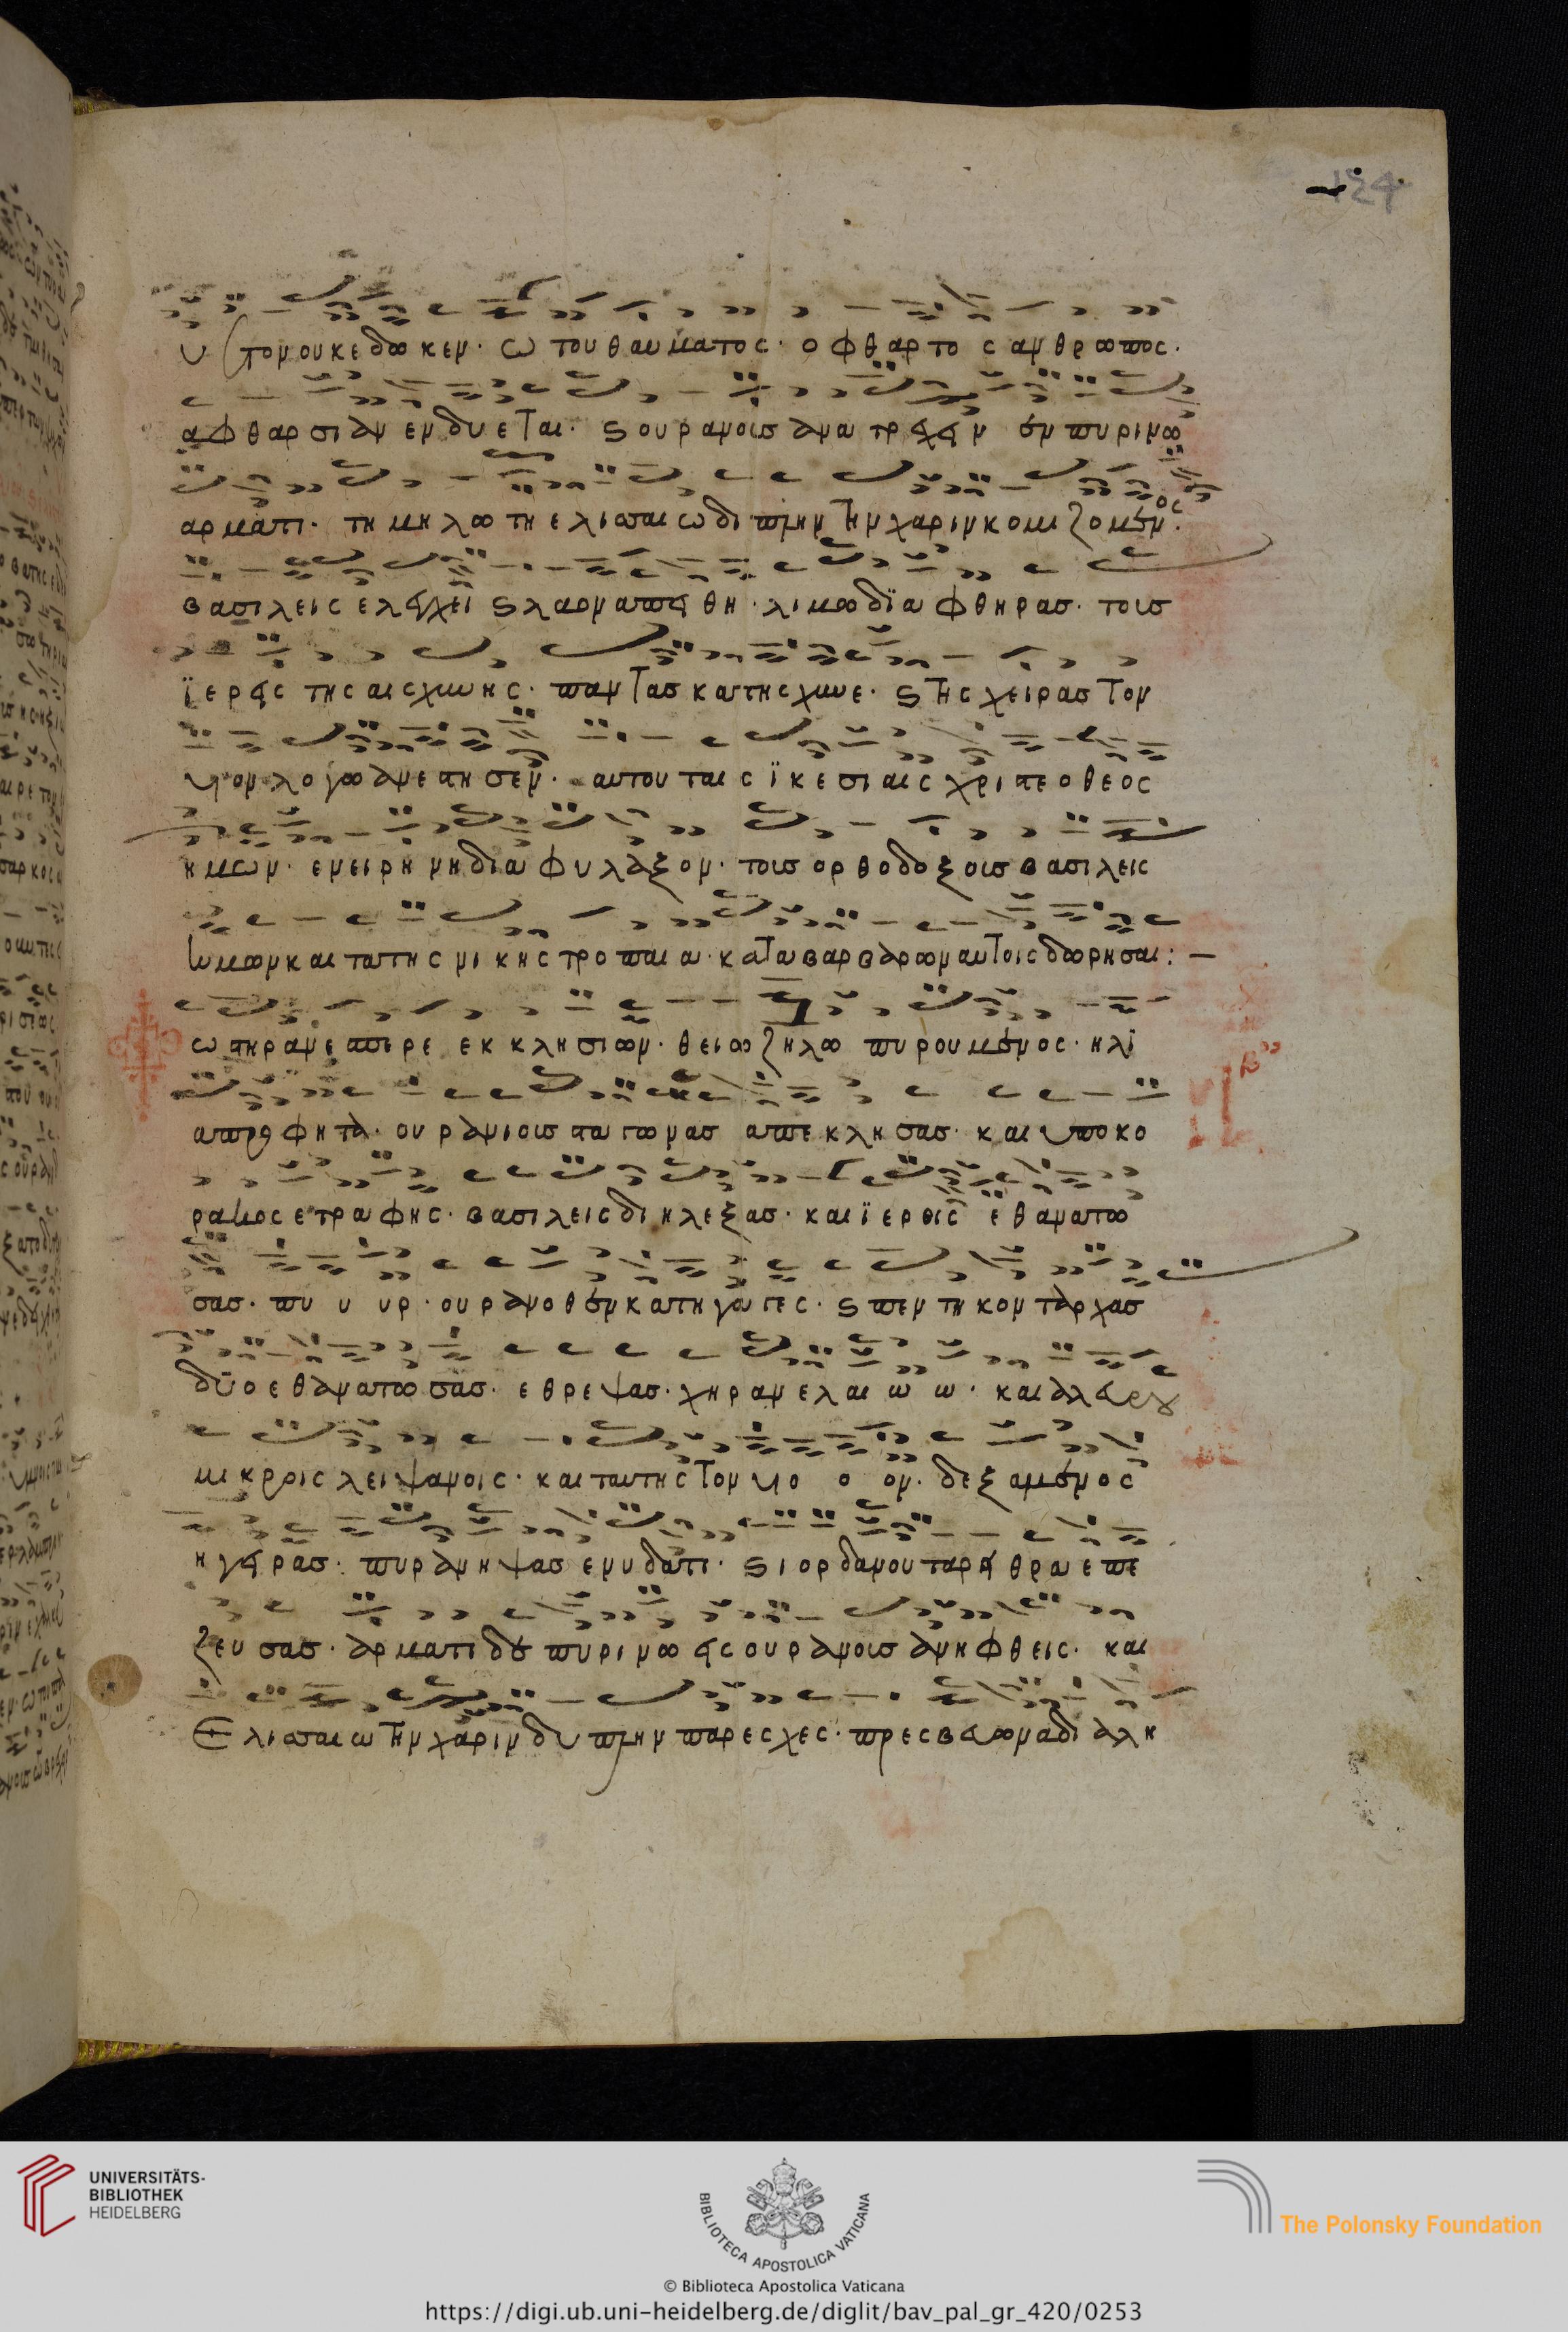 124
υετον ουκ εδωκεν· ω του θαυματος· ο φθαρτος ανθρωπος·
αφθαρσιαν ενδυεται· ϛ ουρανοις ανατρεχει εν πυρινω
αρματι· τη μηλωτη ελισαιω διπλην την χαριν κομιζομενος·
βασιλεις ελεγχει ϛ λαον απειθη· λιμω διαφθηρας· τους
ϊερεις της αισχυνης· παντας κατησχυνε· ϛ της χειρας τον
υιον λογω ανεστησεν· αυτου ταις ϊκεσιαις χριστε ο θεος
ημων· εν ειρηνη διαφυλαξον· τοις ορθοδοξοις βασιλεις
ημων και τα της νικης τροπαια· κατα βαρβαρων αυτοις δωρησαι :–
ω την αμε εκκλησιων· θειω ζηλω πυρουμενος· ηλι
α προφητα· ουρανιους σταγονας απεκλησας· και υπο κο
ρακος ετραφης· βασιλεις διηλεξας· και ϊερεις εθανατω
σας· πυ υ υρ· ουρανοθεν κατηγαγες· ϛ πεντηκονταρχας
δυο εθανατωσας· εθρεψας· χηραν ελαιω ω· και αλευρου
μικροις λειψανοις· και ταυτης τον υιο ο ον· δεξαμενος
ηγειρας· πυρ ανηψας εν υδατι· ϛ ιορδανου τα ρειθρα επε
ζευσας· αρματι δε πυρινω εις ουρανους ανηφθεις· και
Ελισαιω την χαριν διπλην παρεσχες· πρεσβευων αδιαλη
UNIVERSITÄTS-
BIBLIOTHEK
HEIDELBERG
BIBLIOTECA APOSTOLICA VATICANA
The Polonsky Foundation
© Biblioteca Apostolica Vaticana
https://digi.ub.uni-heidelberg.de/diglit/bav_pal_gr_420/0253